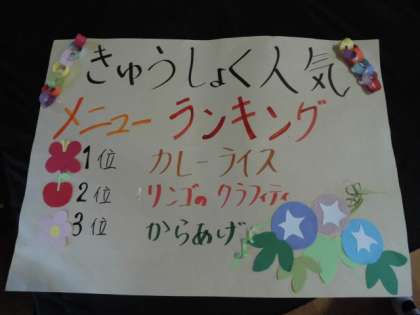 きゅうしょく人気
メニュー ランキング
1位 カレーライス
2位 リンゴのクラフィティ
3位 からあげ